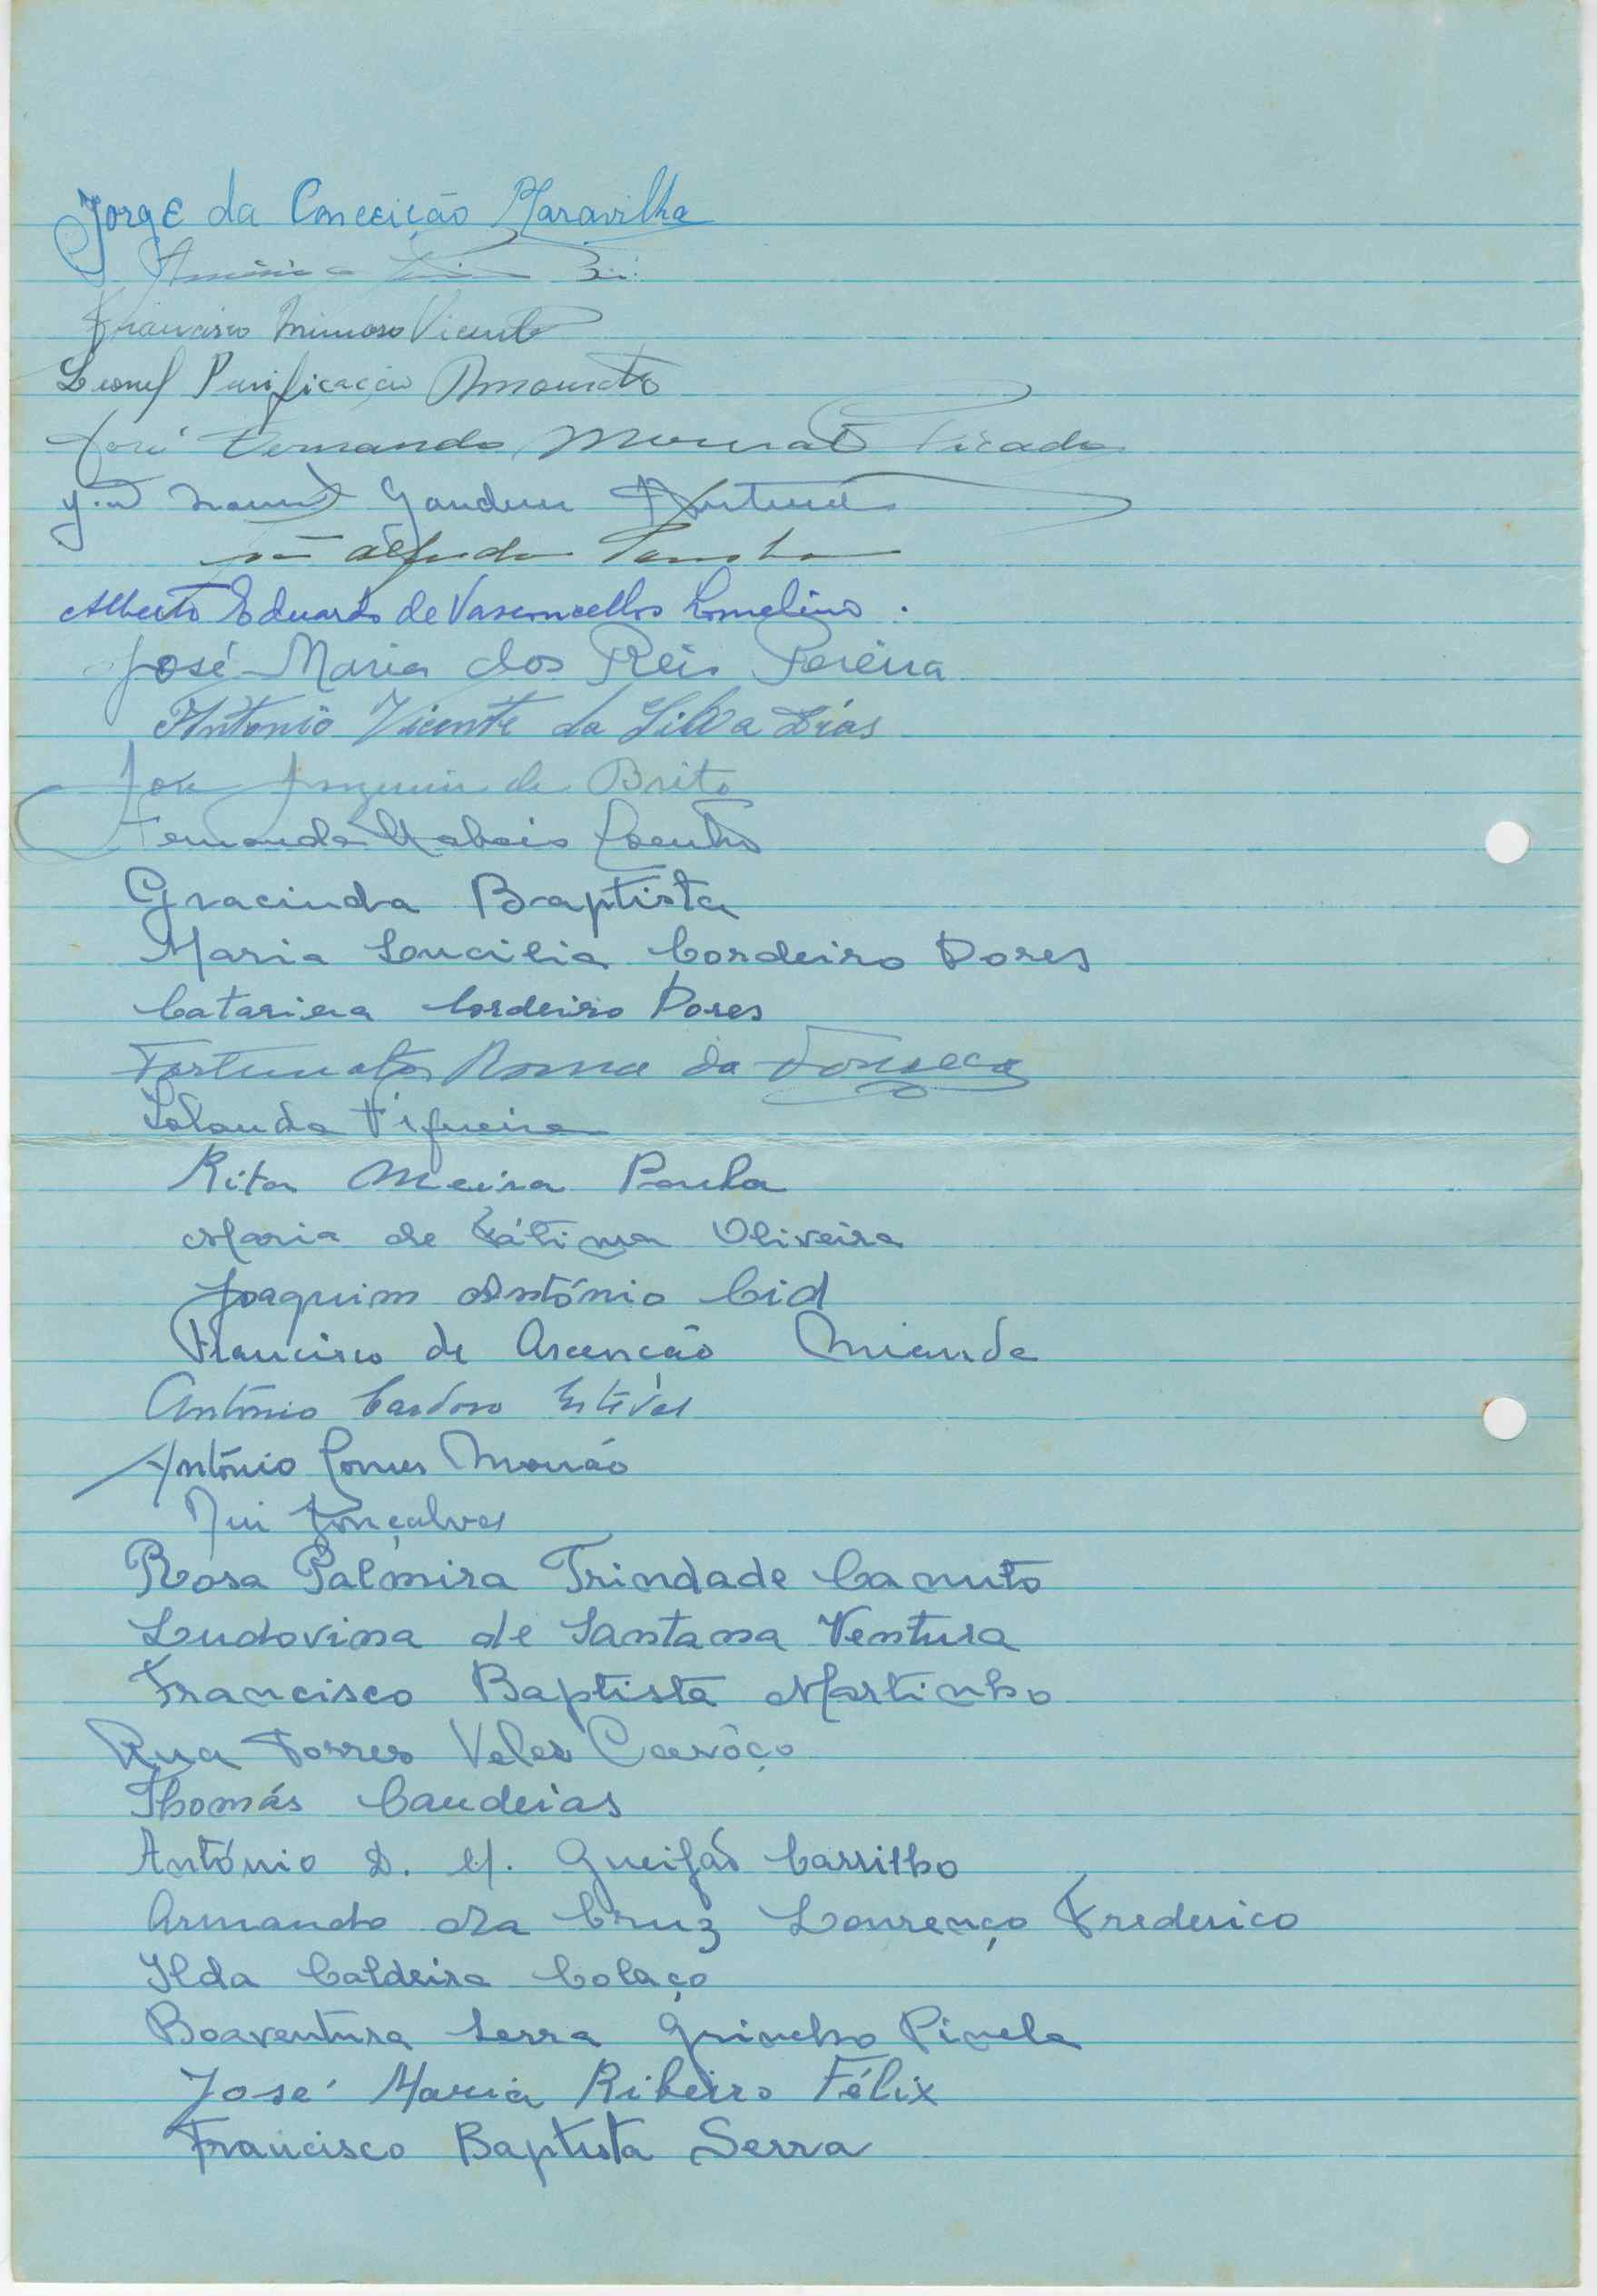 Jorge da Conceição Maravilha
Francisco Mimoso Vicente
Leonel Purificação
José Fernando Picado
José Alfredo
Alberto Eduardo de Vasconcellos Lomelino.
José Maria dos Reis Pereira
António Vicente da Silva Dias
José Joaquim de Brito
Fernando
Gracinda Baptista
Maria Loucilia Cordeiro Dores
Catarina Cordeiro Dores
Fortunato Roma da Fonseca
Iolanda Figueira
Rita Meira Paula
Maria de Fátima Oliveira
Joaquim António Cid
Francisco de Ascenção Miranda
António Cardoso Estêves
António Gomes Mourão
Rui Gonçalves
Rosa Palmira Trindade Canuto
Ludovina de Santana Ventura
Francisco Baptista Martinho
Rua Torres Veles Carôço
Thomás Candeias
António D. M. Queifás Carrilho
Armando da Cruz Lourenço Frederico
Ilda Caldeira Colaço
Boaventura Serra Grincho Pinela
José Maria Ribeiro Félix
Francisco Baptista Serra